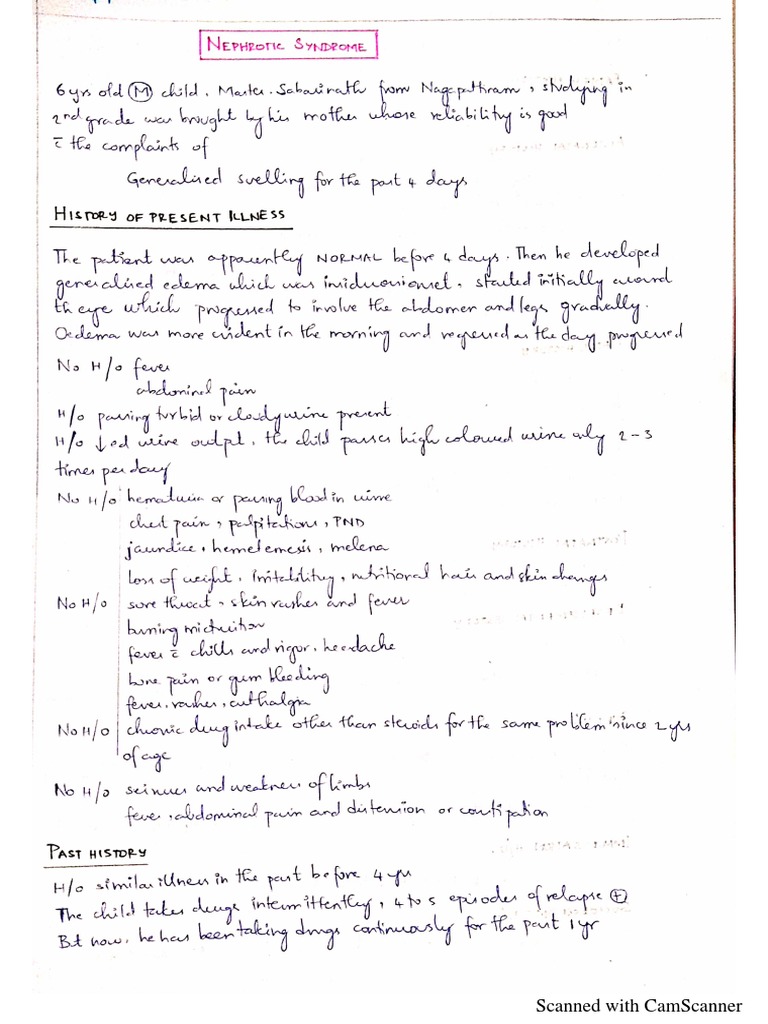 NEPHROTIC SYNDROME
6yrs old (M) child, Master. Sabarinath from Nagapattnam, studying in
2nd grade was brought by his mother whose reliability is good
c̄ the complaints of
Generalised swelling for the past 4 days
HISTORY OF PRESENT ILLNESS
The patient was apparently NORMAL before 4 days. Then he developed
generalised edema which was insidious onset, started initially around
the eye which progressed to involve the abdomen and legs gradually.
Oedema was more evident in the morning and regressed as the day progressed
No H/o fever
abdominal pain
H/o passing turbid or cloudy urine present
H/o ↓ed urine output, the child passes high coloured urine only 2-3
times per day
No H/o hematuria or passing blood in urine
chest pain, palpitations, PND
jaundice, hemetemesis, melena
loss of weight, irritability, nutritional hair and skin changes
No H/o sore throat, skin rashes and fever
burning micturition
fever c̄ chills and rigor, headache
bone pain or gum bleeding
fever, rashes, arthalgia
No H/o chronic drug intake other than steroids for the same problem since 2 yrs
of age
No H/o seizures and weakness of limbs
fever, abdominal pain and distension or constipation
PAST HISTORY
H/o similar illness in the past before 4 yrs
The child takes drugs intermittently, 4 to 5 episodes of relapse (+)
But now, he has been taking drugs continuously for the past 1 yr
Scanned with CamScanner